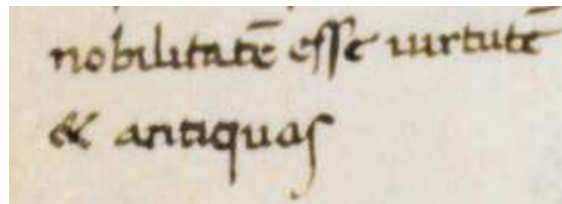 nobilitatē esse uirtutē
& antiquas